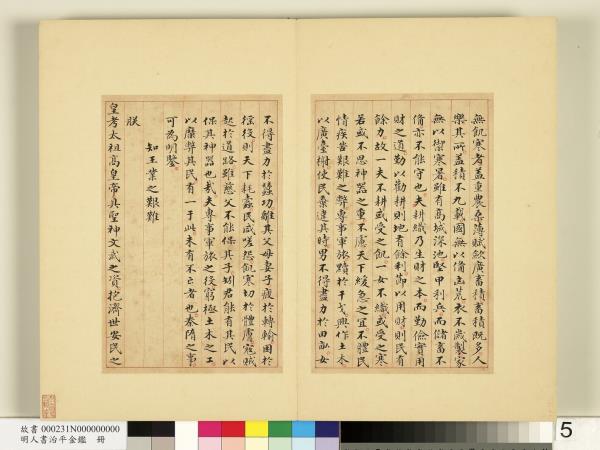 無飢寒者蓋重農桑薄賦斂廣畜積畜積既多人
樂其所蓋積不九載國無以備凶荒衣不歲製家
無以禦寒暑雖有高城深池堅甲利兵而儲畜不
備亦不能守也夫耕織乃生財之本而勤儉實用
財之道勤以勸耕則地有餘利節以用財則民有
餘力故一夫不耕或受之飢一女不織或受之寒
若或不思神器之重不慮天下緩急之宜不體民
情疾苦艱難之弊專事軍旅黷於干戈興作土木
以廣臺榭使民桑違其時男不得盡力於田畝女
不得盡力於蠶功離其父母妻子疲於轉輸困於
徭役則天下耗蠹民咸嗟怨飢寒切於體膚寇賊
起於道路雖慈父不能保其子矧君能有其民以
保其神器也哉夫專事軍旅之役窮極土木之工
以糜弊其民有一于此未有不亡者也秦隋之事
可為明鑒
知王業之艱難
朕
皇考太祖高皇帝具聖神文武之資抱濟世安民之
故書 000231N000000000
明人書治平金鑑 冊
5